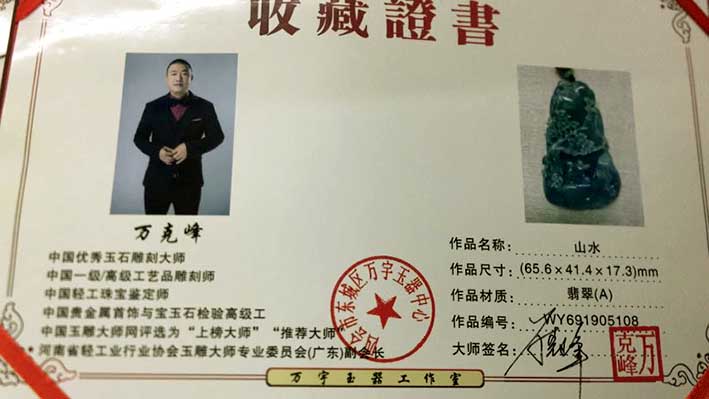 收藏證書
万克峰
中国优秀玉石雕刻大师
中国一级/高级工艺品雕刻师
中国轻工珠宝鉴定师
中国贵金属首饰与宝玉石检验高级工
中国玉雕大师网评选为“上榜大师”“推荐大师”
*河南省轻工业行业协会玉雕大师专业委员会(广东)副会长
作品名称: 山水
作品尺寸: (65.6×41.4×17.3)mm
作品材质: 翡翠(A)
作品编号: WY691905108
大师签名:
四会市东城区万宇玉器中心
万克峰
万宇玉器工作室